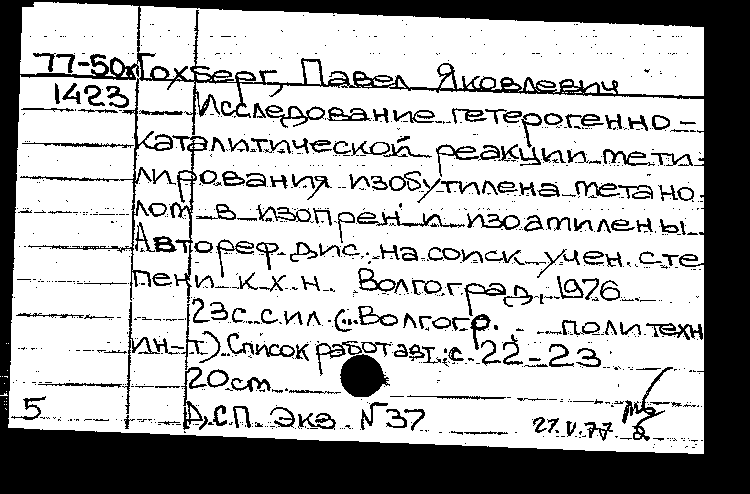 77-50к Гохберг, Павел Яковлевич
1423 Исследование гетерогенно-
каталитической реакции мети-
лирования изобутилена метано-
лом в изопрен и изоамилены
Автореф. дис. на соиск учен. сте
пени к.х.н. Волгоград, 1976
23с. с ил. (..Волгогр. политехн
ин-т) Список работ авт.: с 22-23
20см
5 Д,СП. Экз N 37 27.V.77